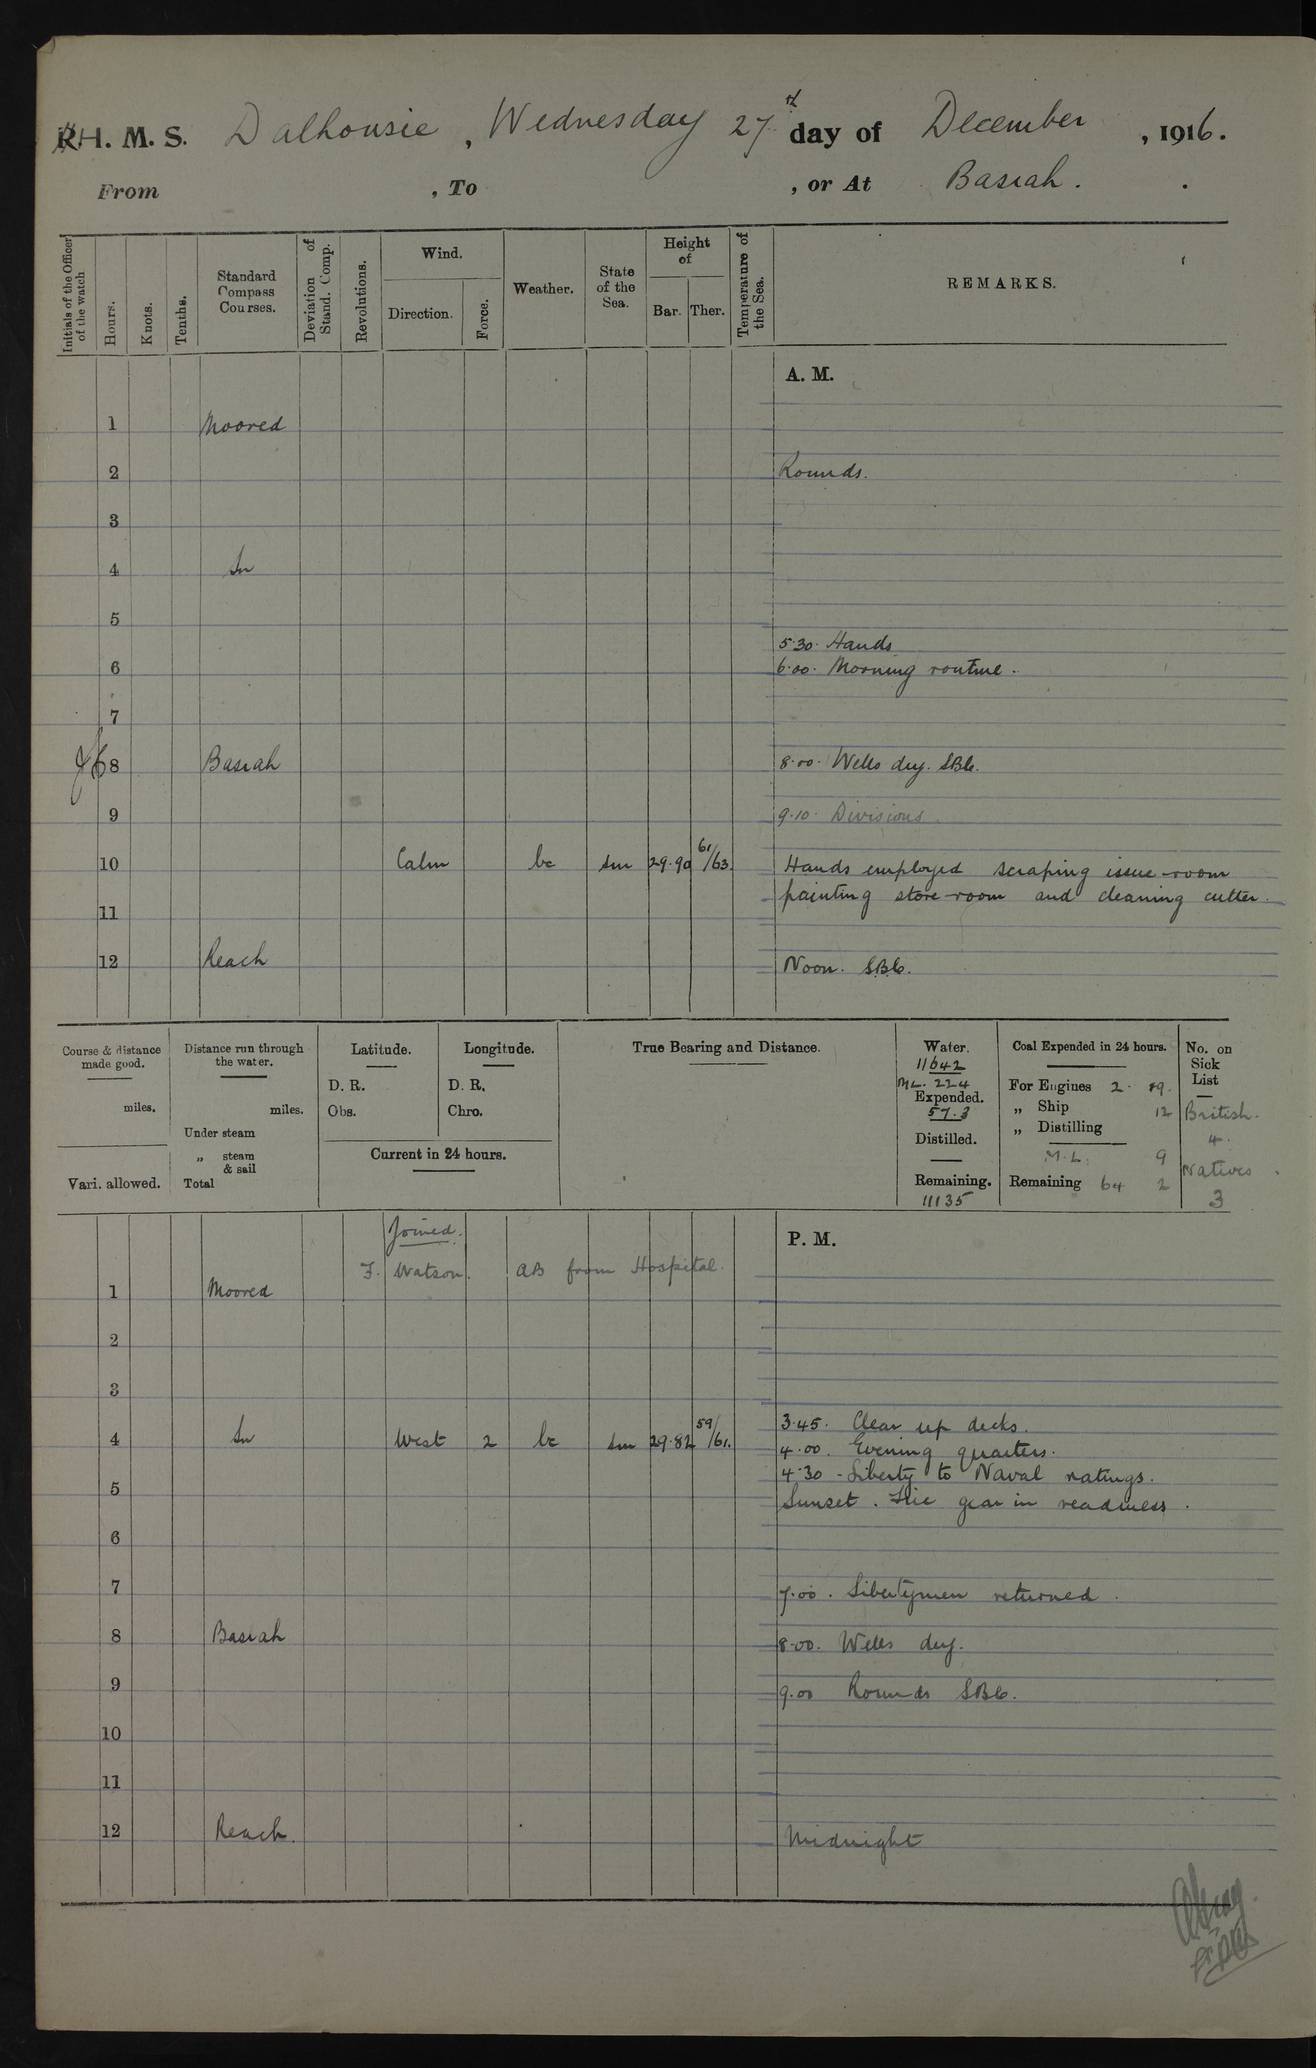 H. M. S. Dalhousie, Wednesday 27th day of December, 1916.
From , To , or At Basrah.
Initials of the Officer of the watch
Hours.
Knots.
Tenths.
Standard Compass Courses.
Deviation of Stand. Comp.
Revolutions.
Wind.
Direction.
Force.
Weather.
State of the Sea.
Height of
Bar. Ther.
Temperature of the Sea.
REMARKS.
A. M.
1 Moored
2 Rounds.
3
4 In
5
5.30. Hands
6 6.00. Morning routine.
7
8 Basrah 8.00. Wells dry. SBC.
9 9.10. Divisions.
10 Calm bc sm 29.90 61/63. Hands employed scraping issue-room
11 painting store-room and cleaning cutter.
12 Reach Noon. SBC.
Course & distance made good.
miles.
Vari. allowed.
Distance run through the water.
miles.
Under steam
„ steam & sail
Total
Latitude.
D. R.
Obs.
Longitude.
D. R.
Chro.
Current in 24 hours.
True Bearing and Distance.
Water.
11642
ML. 224
Expended.
57.3
Distilled.
Remaining.
11135
Coal Expended in 24 hours.
For Engines 2. 19.
„ Ship 12
„ Distilling
M.L. 9
Remaining 64 2
No. on Sick List
British.
4.
Natives.
3
Joined.
F. Watson. AB from Hospital.
P. M.
1 Moored
2
3
3.45. Clear up decks.
4 In West 2 bc sm 29.82 59/61. 4.00. Evening quarters.
4.30 - Liberty to Naval ratings.
5 Sunset. Fire gear in readiness.
6
7 7.00. Libertymen returned.
8 Basrah 8.00. Wells dry.
9 9.00 Rounds SBC.
10
11
12 Reach. Midnight